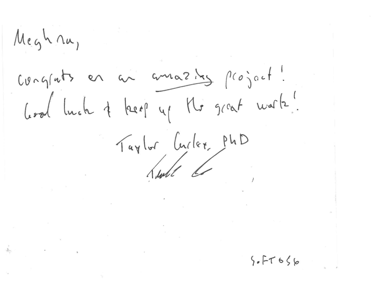 Meghna,
congrats on an amazing project!
Good luck & keep up the great work!
Taylor Curley, PhD
SOFT056